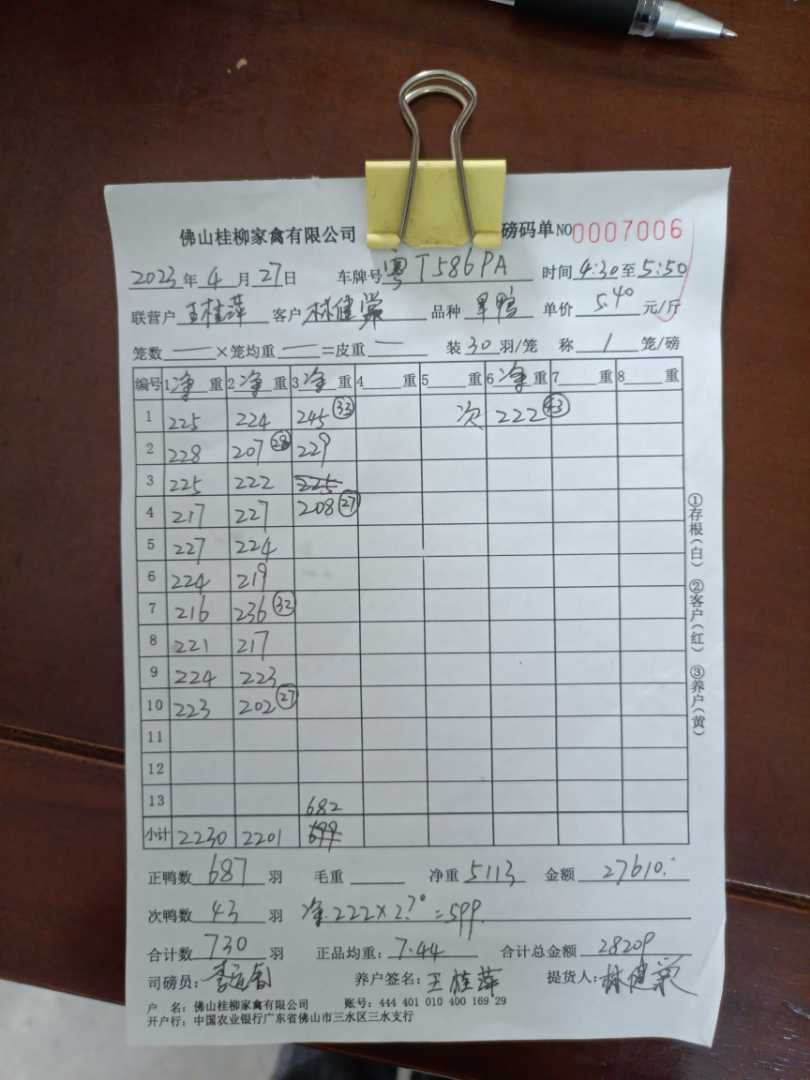 佛山桂柳家禽有限公司 磅码单 NO 0007006
2023年4月27日 车牌号 粤T586PA 时间 4:30至5:50
联营户 王桂萍 客户 林健荣 品种 旱鸭 单价 5.40 元/斤
笼数 — ×笼均重 — =皮重 — 装30羽/笼 称 1 笼/磅
编号 1净重 2净重 3净重 4 重 5 重 6净重 7 重 8 重
1 225 224 245 (33) 次 222 (43)
2 228 207 (28) 229
3 225 222 225
4 217 227 208 (27)
5 227 224
6 224 219
7 216 236 (32)
8 221 217
9 224 223
10 223 202 (27)
11
12
13 682
小计 2230 2201 699
正鸭数 687 羽 毛重 净重 5113 金额 27610.
次鸭数 43 羽 净.222×2.70=599.
合计数 730 羽 正品均重: 7.44 合计总金额 28209
司磅员: 养户签名: 王桂萍 提货人: 林健荣
户 名: 佛山桂柳家禽有限公司 账号: 444 401 010 400 169 29
开户行: 中国农业银行广东省佛山市三水区三水支行
①存根(白) ②客户(红) ③养户(黄)